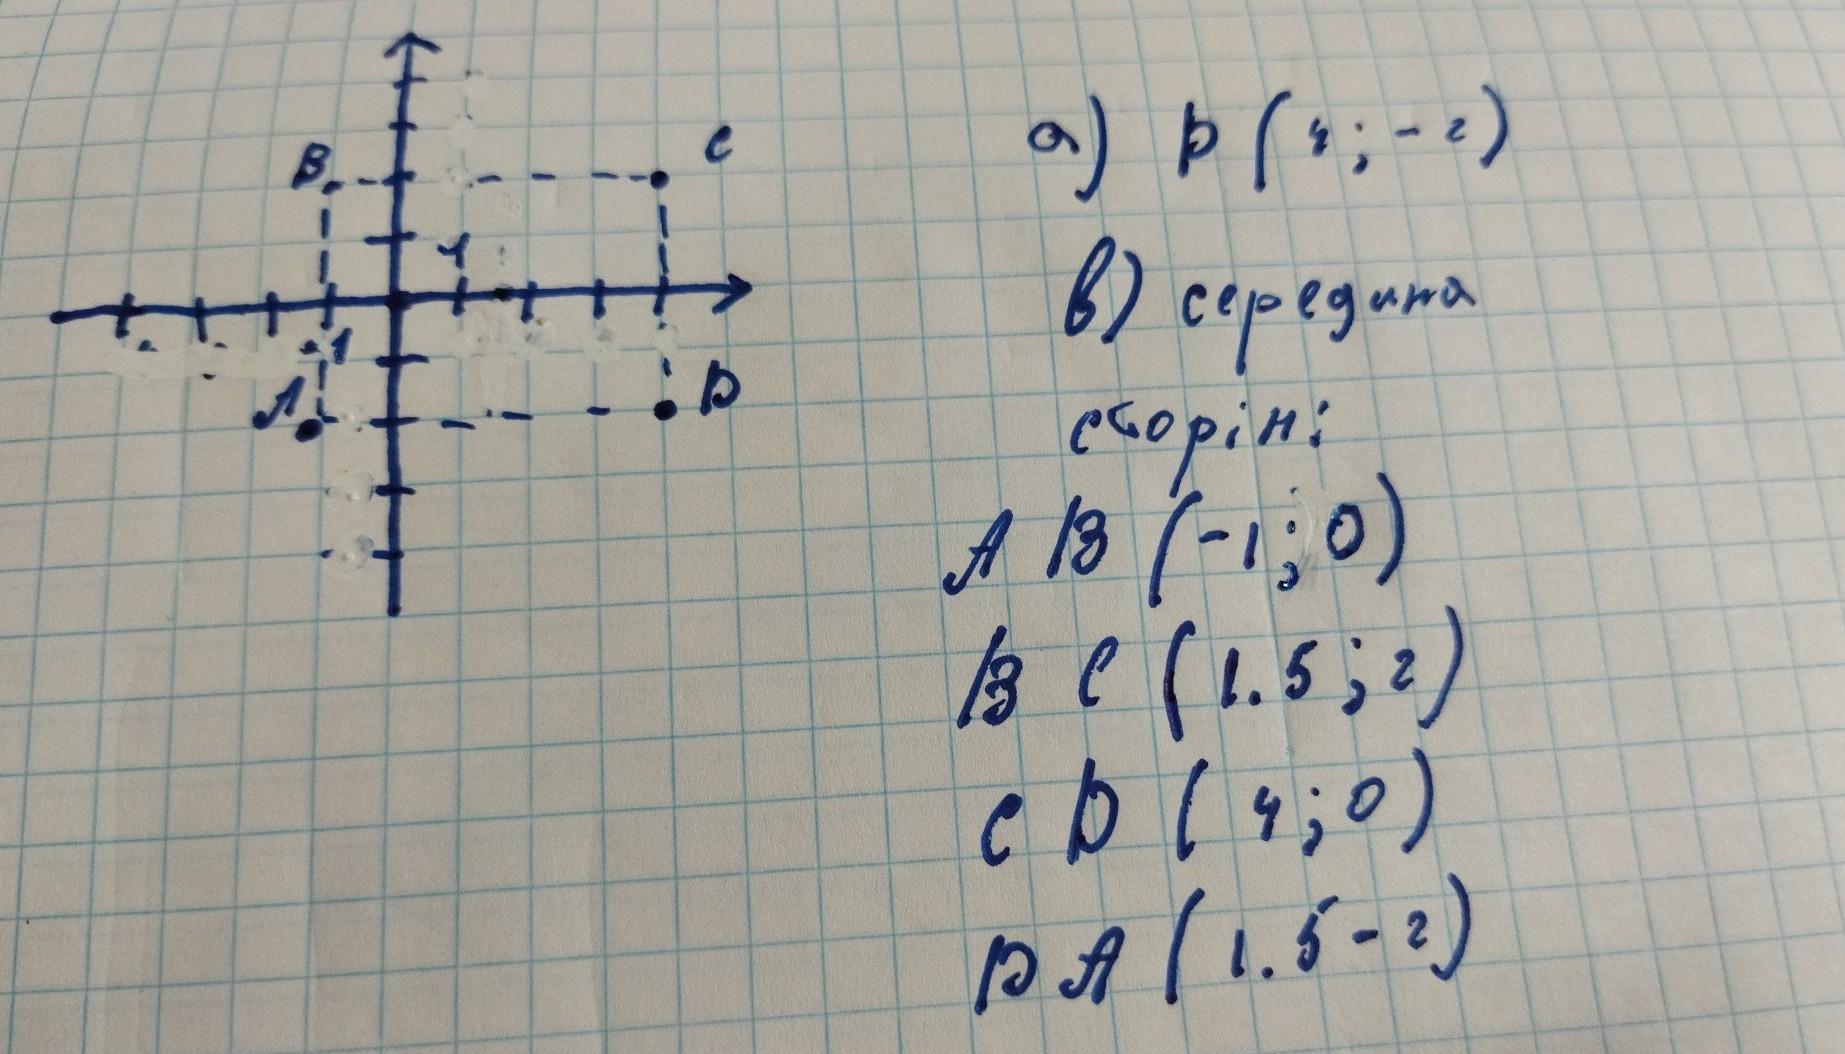 C
B
1
-1
A
D
а) D (4; -2)
в) середина
сторін:
AB (-1; 0)
BC (1.5; 2)
CD (4; 0)
DA (1.5 - 2)